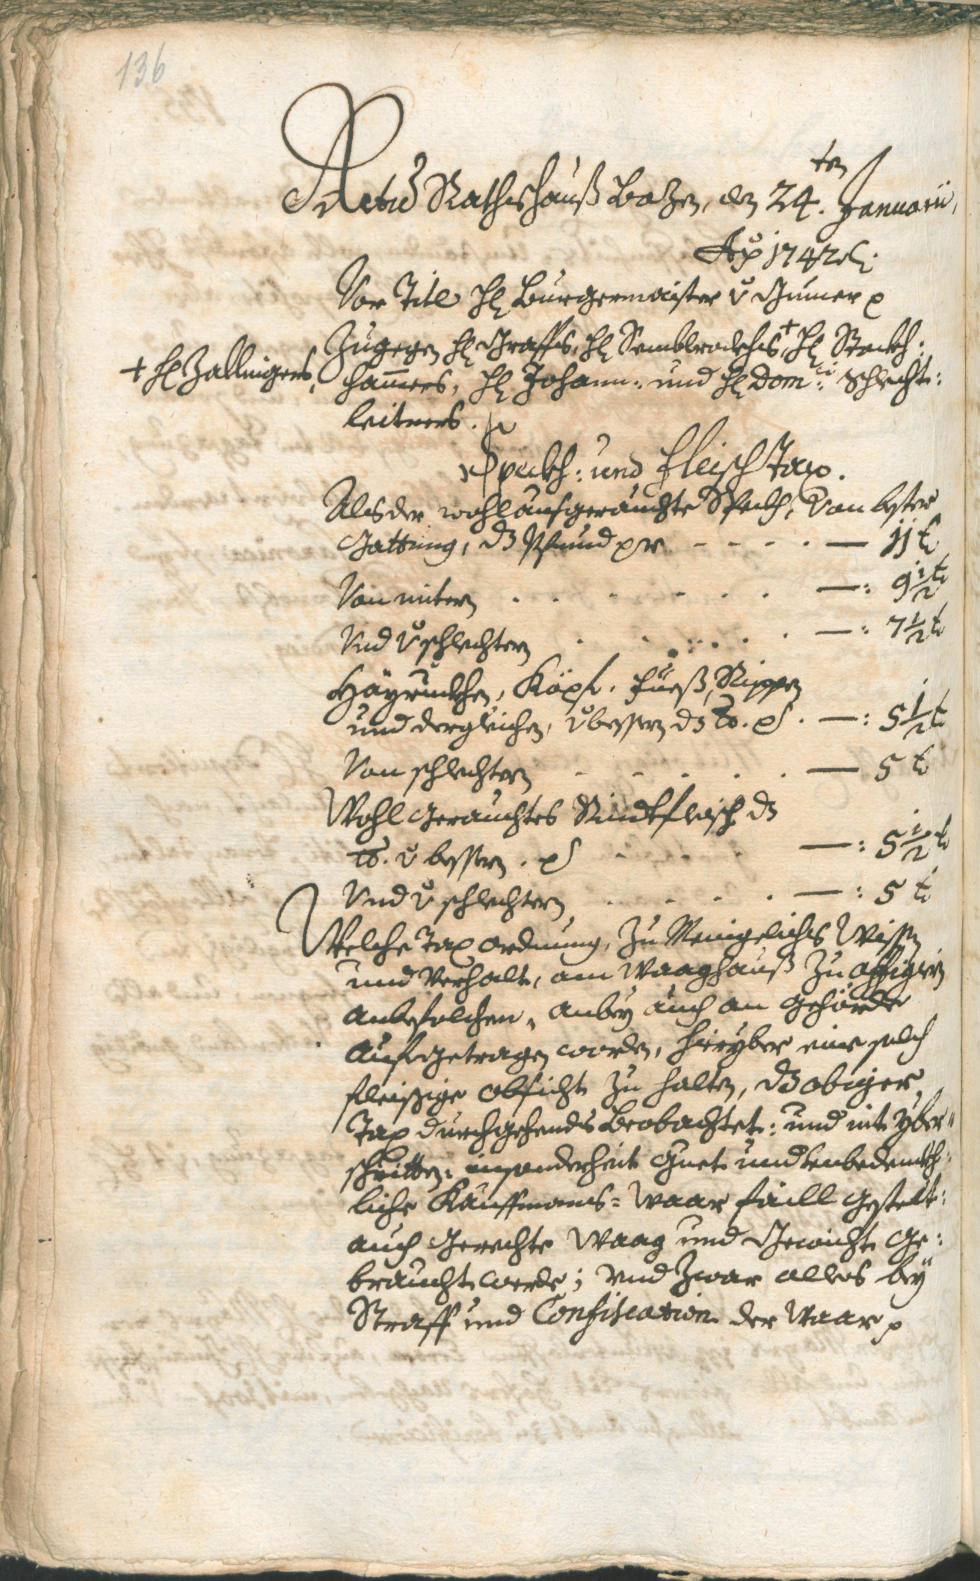 136
Actu Rathshauß Botzen, den 24.ten Januarii,
Ao 1742
Vor Titl H: Burgermaister u
Zugegen H: Graffs, H: Sembleredchs, + H: Stockh:
+ H: Zallingers,
hamers, H: Johann: und H: Dom: Schlecht:
leitners.
Speckh: und Fleisch Tax.
Als der wohl aufgerauchte Speckh, von bester
Gattung, dz Pfund per - - - - — 11 k
Von mitern . . . . . . . —: 9 1/2 k
Und schlechtern . . . . . —: 7 1/2 k
Köpf, Fueß, Rippen
und dergleichen, bessern dz lb. —: 5 1/2 k
Von schlechtern . . . . . — 5 k
Wohl gerauchtes Rindtfleisch dz
lb. bessern . . . —: 5 1/2 k
Und schlechtern . . . . —: 5 k
Welche Tax ordnung, zu Menigeliches Wissen
und Verhalt, am Waaghauß zu affigiern
anbefolchen, anbey auch an gehörde
aufgetragen worden, hieryber eine solch
fleissige obsicht zu halten, dz obiger
Tax durchgehends beobachtet: und nit yber"
schritten: insonderheit guet: und unbedenkh:
liche Kauffmans= Waar faill gestelt:
auch gerechte Waag und Gewicht ge:
braucht werde; und zwar alles bey
Straff und Confiscation der Waar p